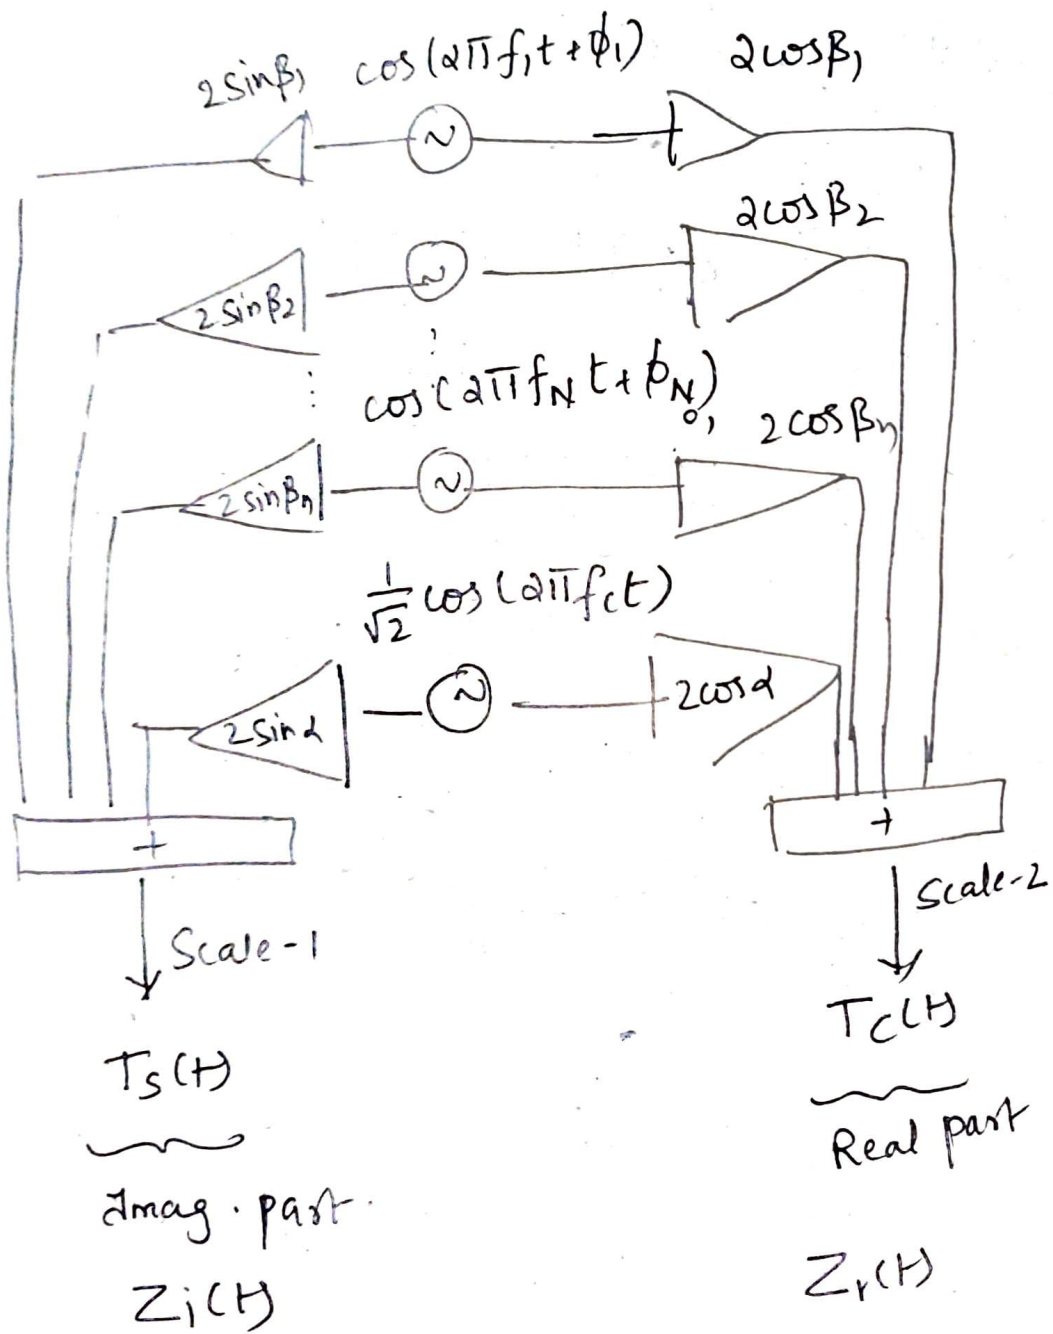 2sinβ₁ cos(2πf₁t+ϕ₁) 2cosβ₁
~
2cosβ₂
~
2sinβ₂
⋮
⋮ cos(2πf_N t+ϕ_N)
2cosβₙ
~
2sinβₙ
1/√2 cos(2πf_c t)
~
2cosα
2sinα
+
+
Scale-2
Scale-1
T_C(t)
T_S(t)
Real part
Imag. part.
Z_r(t)
Z_i(t)